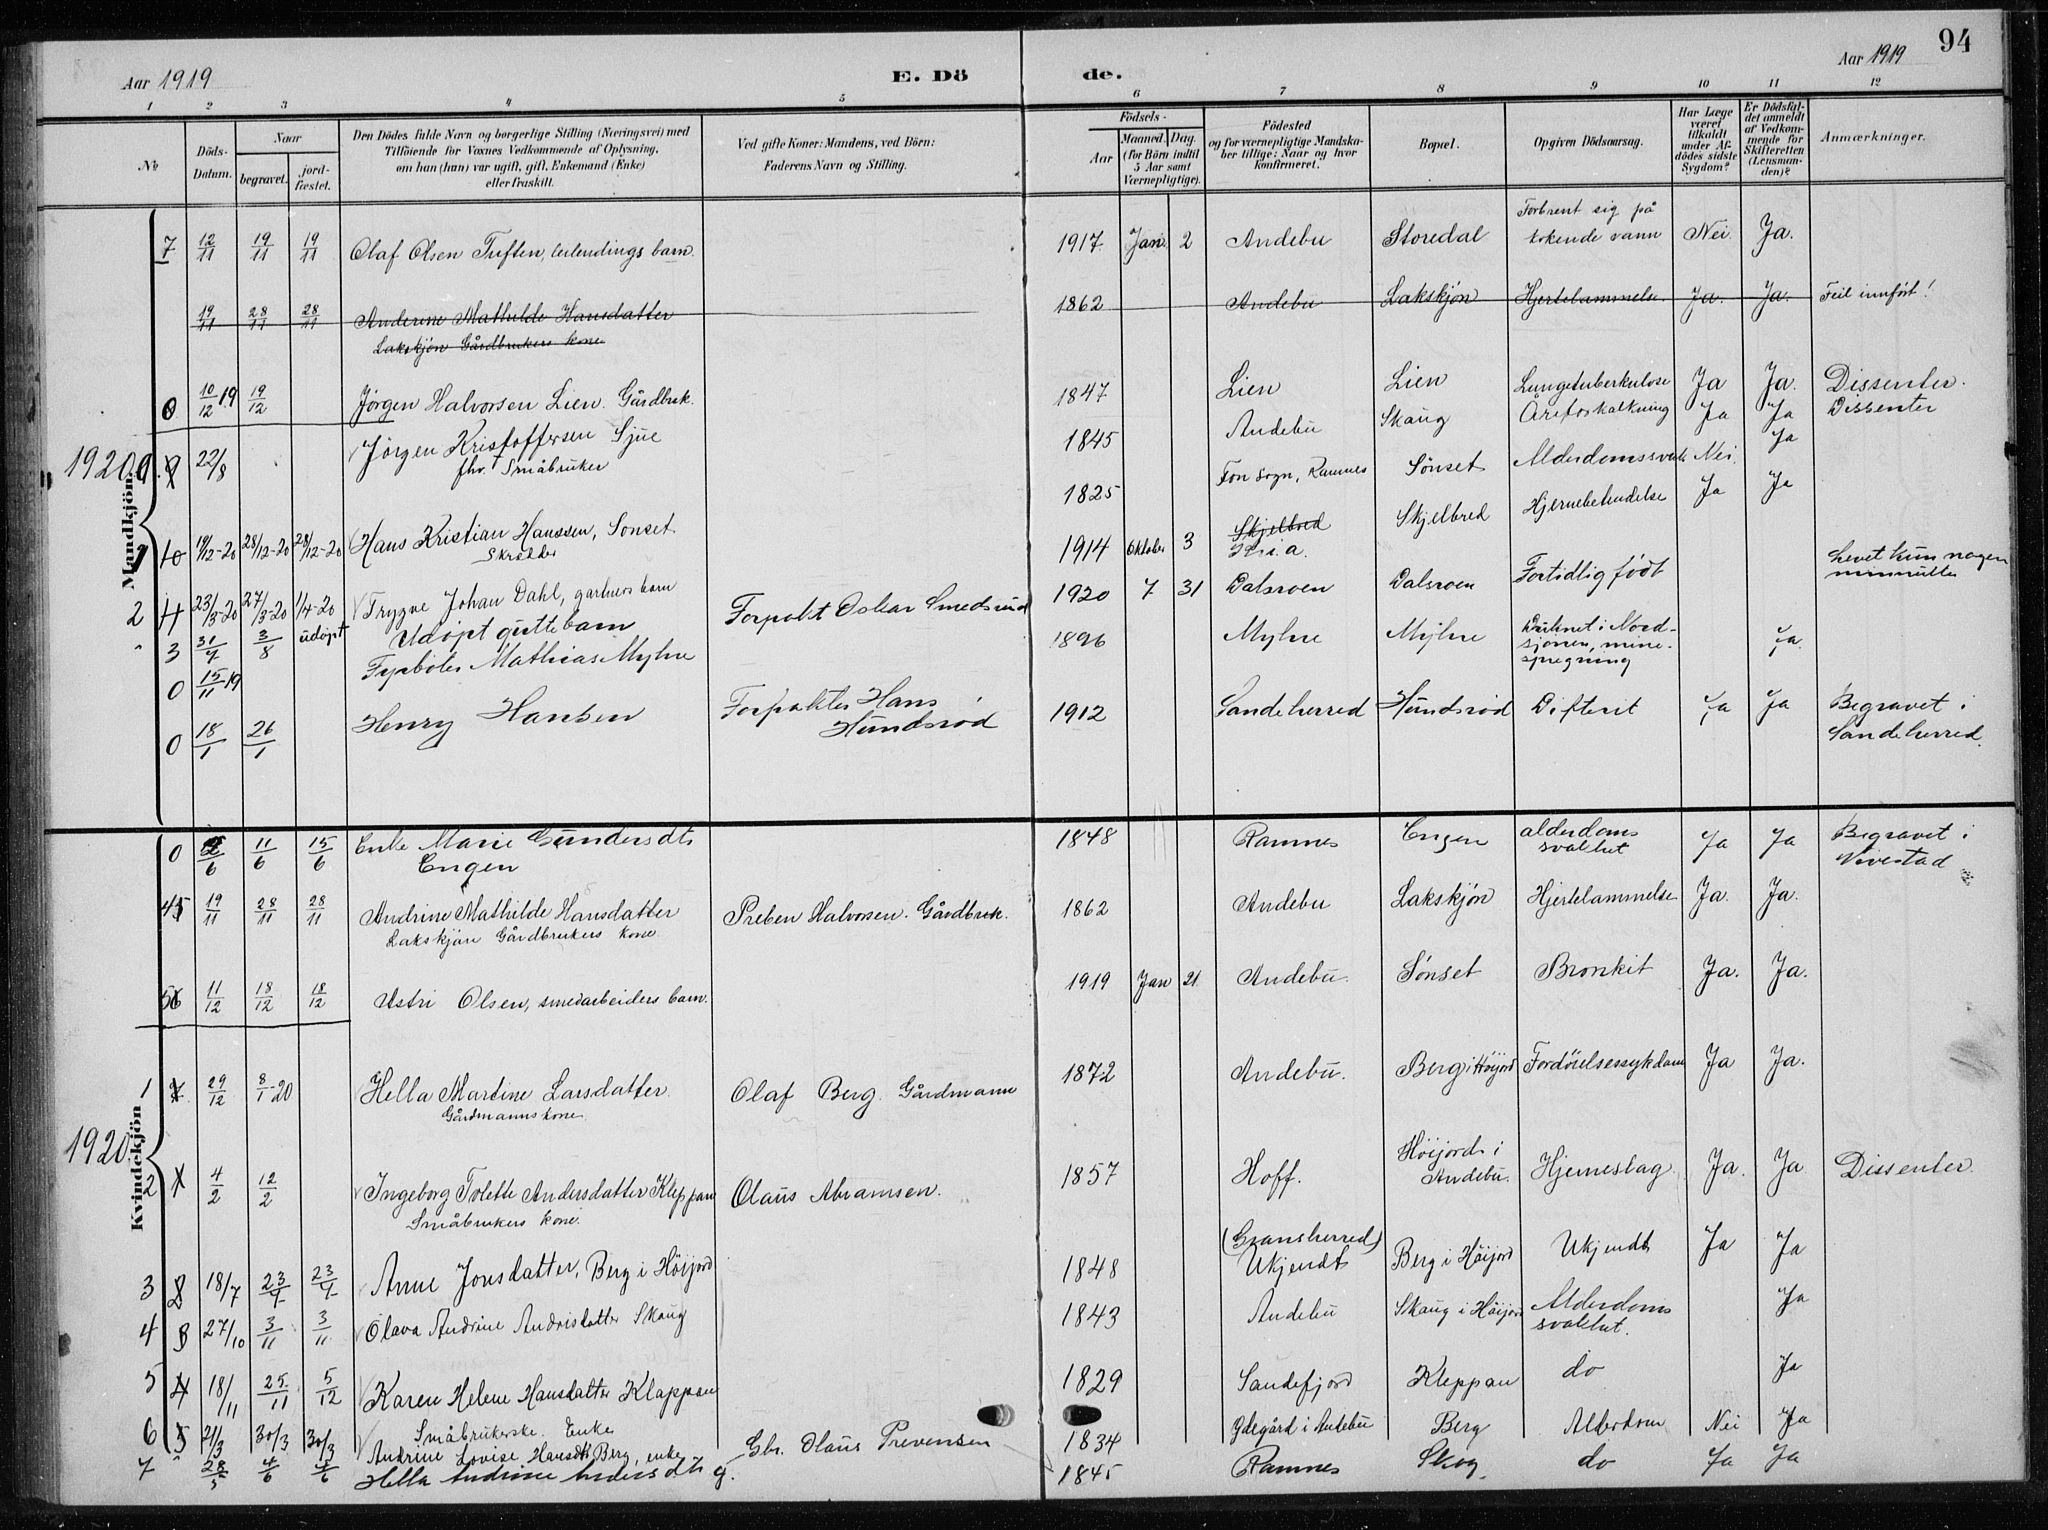 94
Aar 1919 E. Dö de. Aar 1919
1 2 3 4 5 6 7 8 9 10 11 12
No
Döds-Datum.
Naar
begravet.
jord-fæstet.
Den Dödes fulde Navn og borgerlige Stilling (Næringsvei) med
Tilföiende for Voxnes Vedkommende af Oplysning,
om han (hun) var ugift, gift, Enkemand (Enke)
eller fraskilt.
Ved gifte Koner: Mandens, ved Börn:
Faderens Navn og Stilling.
Födsels-
Aar
Maaned. Dag.
(for Börn indtil
5 Aar samt
Værnepligtige).
Födested
og for værnepligtige Mandska-
ber tillige: Naar og hvor
konfirmeret.
Bopæl.
Opgiven Dödsaarsag.
Har Læge
været
tilkaldt
under Af-
dödes sidste
Sygdom?
Er Dödsfal-
det anmeldt
af Vedkom-
mende for
Skifteretten
(Lensman-
den)?
Anmærkninger.
Mandkjön.
7 12/11 19/11 19/11 Olaf Olsen Tuften, leilendings barn. 1917 Jan. 2 Andebu Storedal Forbrent sig på
kokende vann Nei. Ja.
19/11 28/11 28/11 Anderine Mathilde Hansdatter 1862 Andebu Lakskjøn Hjertelammelse Ja. Ja. Feil innført!
Lakskjön Gårdbrukers kone
0 10/12 19 19/12 Jørgen Halvorsen Lien. Gårdbruk. 1847 Lien Lien Lungetuberkulose Ja Ja. Dissenter.
1920 22/8 Jørgen Kristoffersen Sjue 1845 Andebu Skaug Åreforkalkning Ja Ja Dissenter
fhv. Småbruker
1 10 19/12-20 28/12-20 28/12-20 Hans Kristian Hanssen, Sønset 1825 Fon sogn, Ramnes Sønset Alderdomssvak. Nei. Ja
Skredder
2 23/3-20 27/3-20 1/4-20 Trygve Johan Dahl, gartners barn 1914 Oktober 3 Skjelbred
Kr.i.a. Skjelbred Hjernebetendelse Ja Ja
" 3 31/7 3/8 udøpt Udøpt guttebarn Forpakt Oskar Smedsrud 1920 7 31 Dalsroen Dalsroen Fortidlig født Levet kun nogen
minnutter
0 15/11 19 Fyrbøter Mathias Myhre 1896 Myhre Myhre Druknet i Nord-
sjøen, mine-
spregning Ja.
0 18/1 26/1 Henry Hansen Forpakter Hans
Hundsrød 1912 Sandeherred Hundsrød Difterit Ja Ja Begravet i
Sandeherred.
Kvindekjön
0 2/6 11/6 15/6 Enke Marie Gundersdt 1848 Ramnes Engen alderdoms
svakhet Ja Ja Begravet i
Vivestad
Engen
45 19/11 28/11 28/11 Andrine Mathilde Hansdatter Preben Halvorsen. Gårdbruk. 1862 Andebu Lakskjøn Hjertelammelse Ja. Ja.
Lakskjön Gårdbrukers kone
56 11/12 18/12 18/12 Astri Olsen, smedarbeiders barn. 1919 Jan 21 Andebu. Sønset Bronkit Ja. Ja.
1 29/12 8/1-20 Hella Martine Larsdatter. Olaf Berg. Gårdmann 1872 Andebu. Berg i Höijord Fordöielsessykdom Ja Ja.
Gårdmannskone
1920.
2 4/2 12/2 Ingeborg Tolette Andersdatter Kleppan Olaus Abramsen. 1857 Hoff. Höijord i
Andebu. Hjerneslag Ja. Ja Dissenter.
Småbrukers kone.
3 8 18/7 23/7 23/7 Anne Jonsdatter, Berg i Höijord 1848 (Gransherred)
Ukjendt Berg i Höijord Ukjendt Ja Ja
4 27/10 3/11 3/11 Olava Andrine Andrisdatter Skaug 1843 Andebu Skaug i Höijord Alderdoms
svakhet. Ja
5 4 18/11 25/11 5/12 Karen Helene Hansdatter Klappan 1829 Sandefjord Kleppan do Ja
Småbrukerske. Enke
6 5 21/3 30/3 30/3 Andrine Lovise Hansdt Berg, enke Gbr. Olaus Prevensen 1834 Ydegård i Andebu Berg Alderdom Nei Ja
7 " 28/5 4/6 4/6 Hella Andrine Andersdtr g. 1845 Ramnes Skog. do Ja Ja